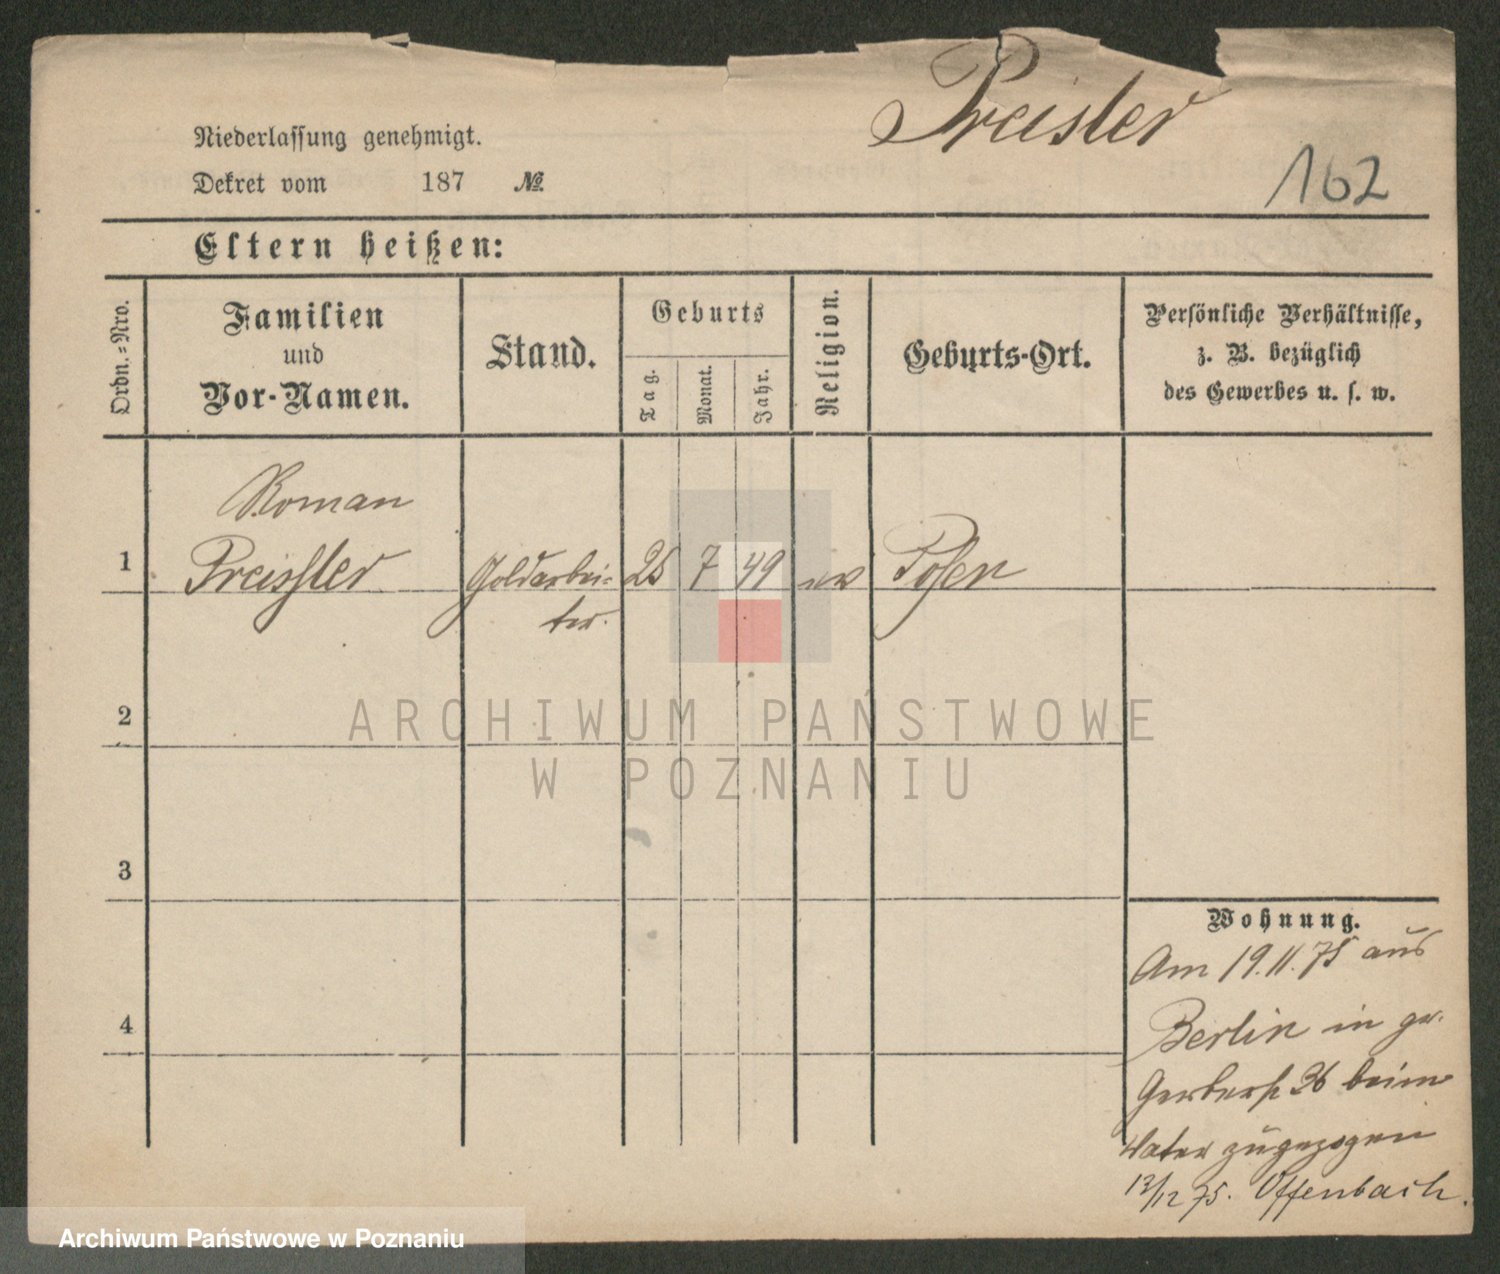 Preisler
162
Niederlassung genehmigt.
Dekret vom 187 №
Eltern heißen:
Ordn.-Nro.
Familien
und
Vor-Namen.
Stand.
Geburts
Tag.
Monat.
Jahr.
Religion.
Geburts-Ort.
Persönliche Verhältnisse,
z. B. bezüglich
des Gewerbes u. s. w.
Roman
1 Preissler Goldarbei- 25 7 49 ev Posen
ter.
2
3
4
ARCHIWUM PAŃSTWOWE
W POZNANIU
Wohnung.
Am 19.11.75 aus
Berlin in gr.
Gerberst 36 beim
Vater zugezogen
13/12 75. Offenbach.
Archiwum Państwowe w Poznaniu